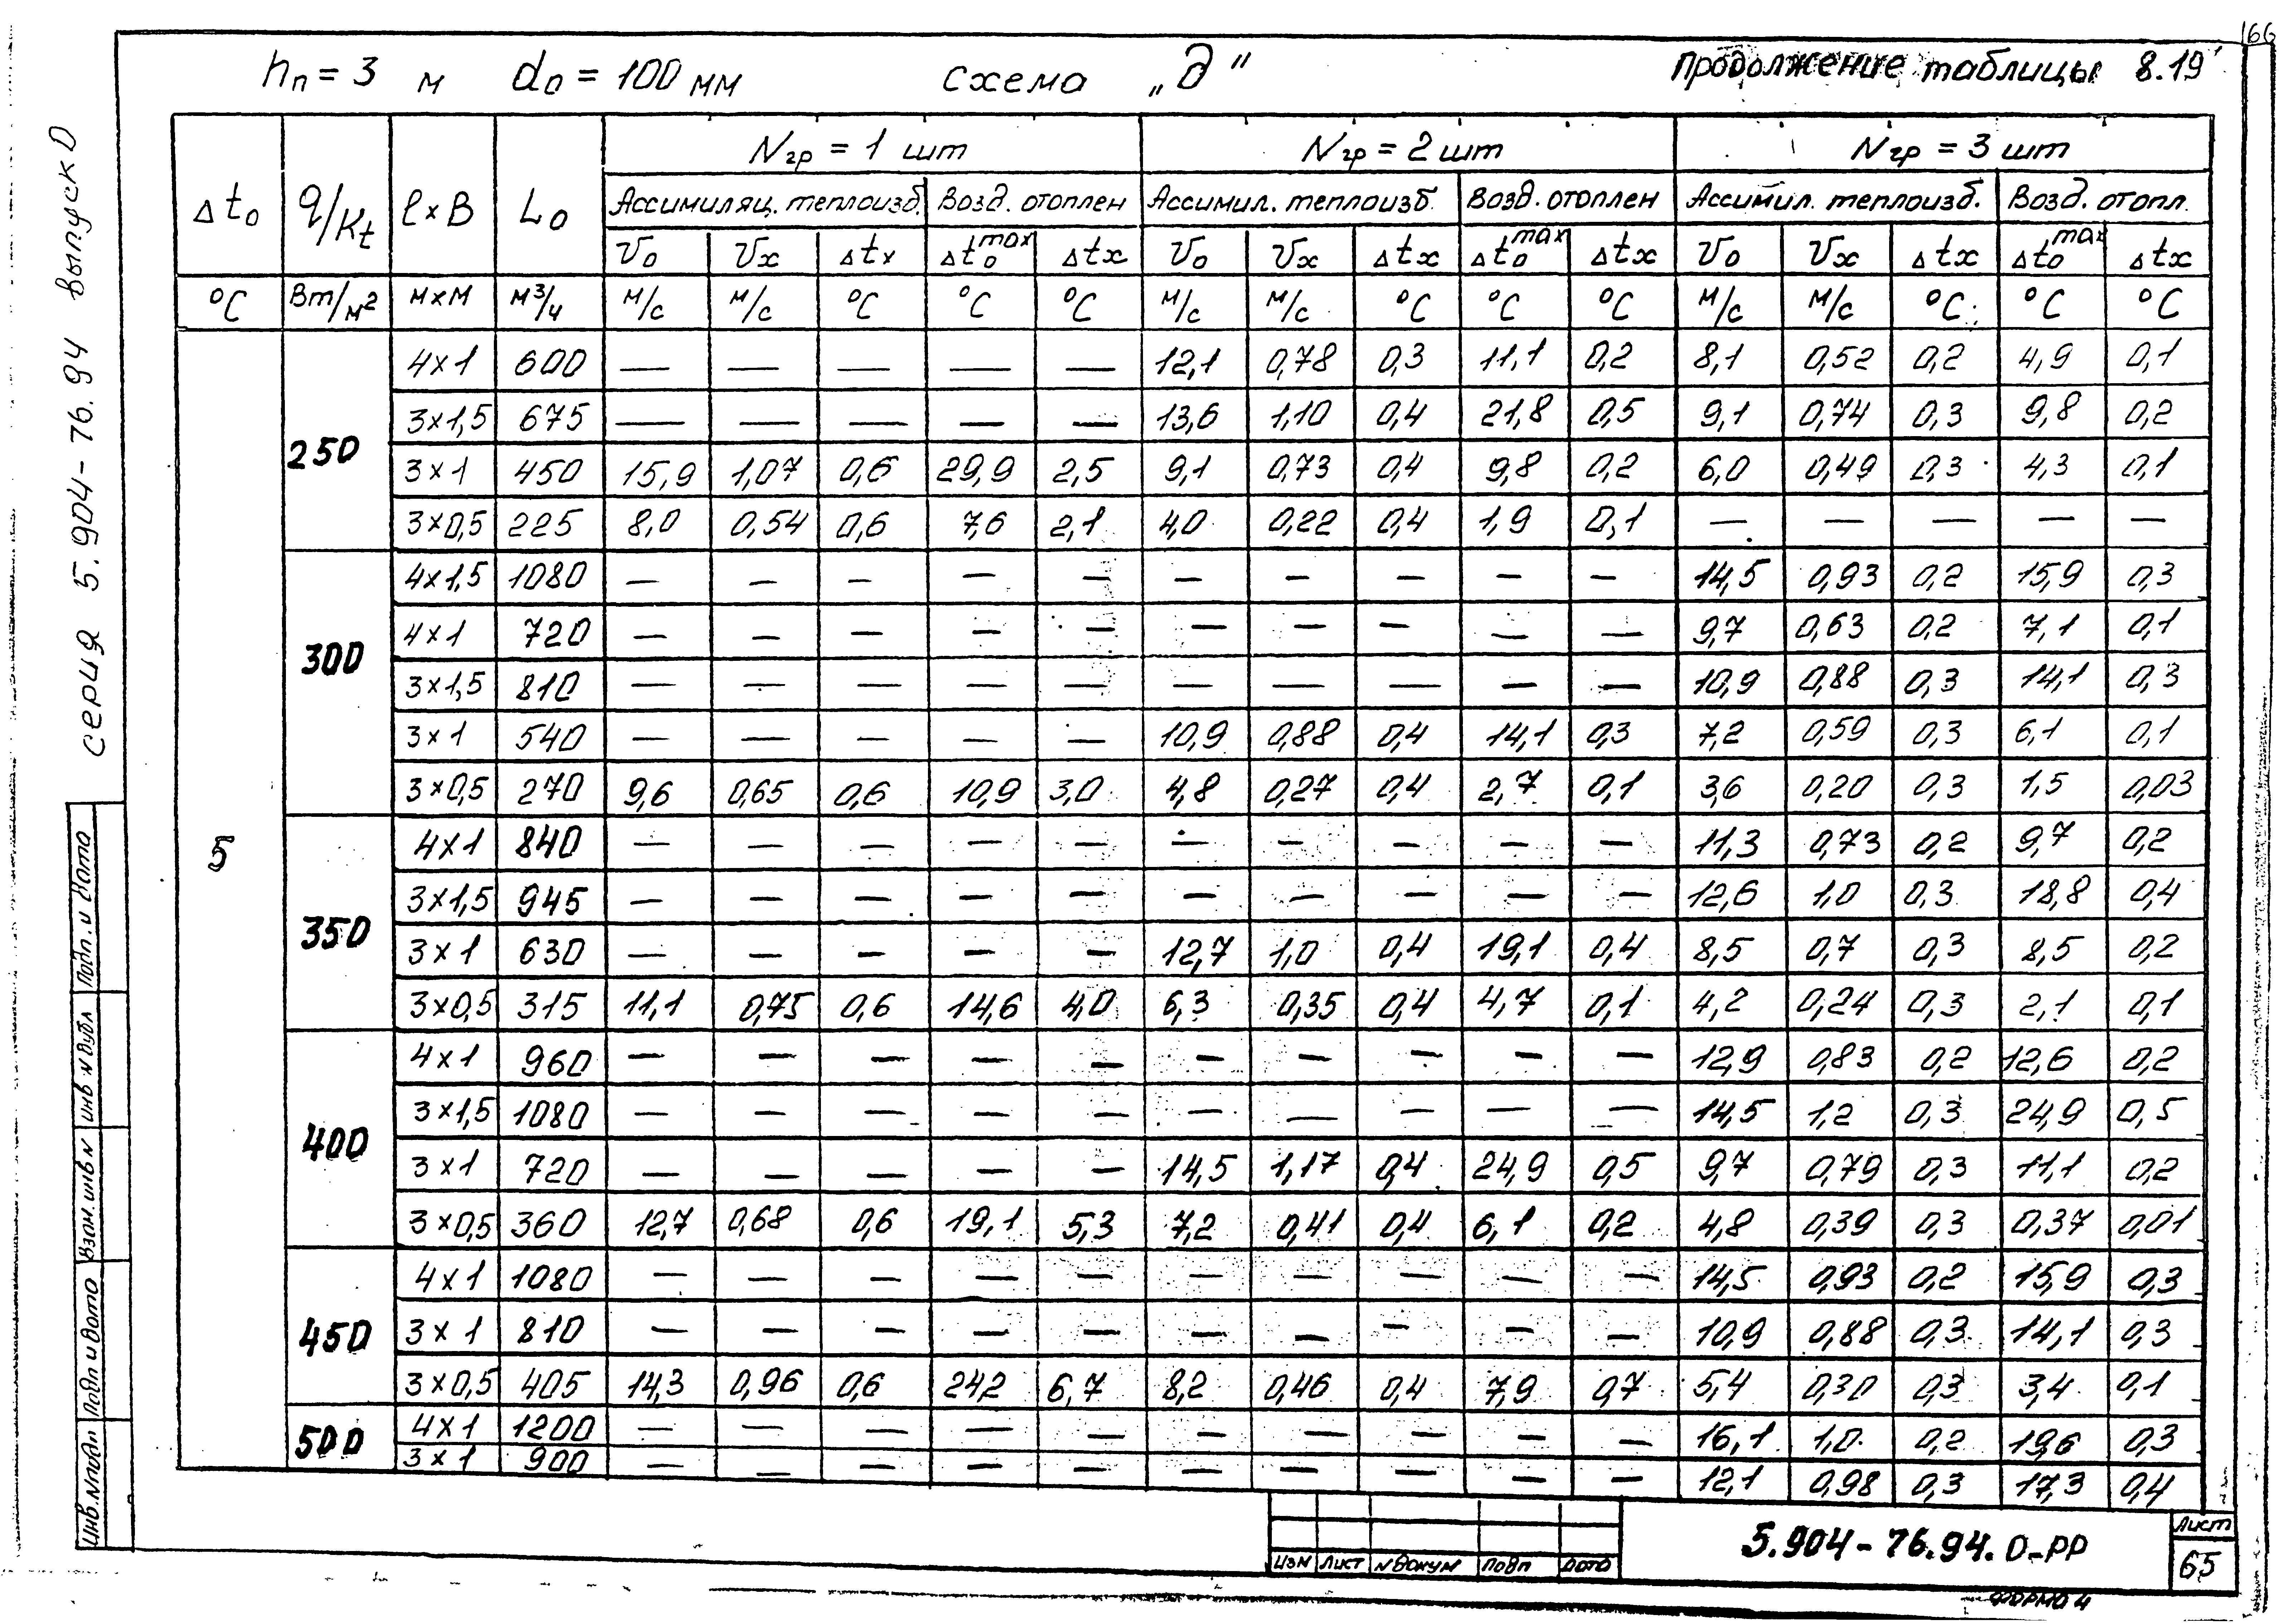 166
hп = 3 м d₀ = 100 мм схема „д" Продолжение таблицы 8.19
серия 5.904-76.94 выпуск 0
Δt₀ q/Kt l×B L₀ Nгр = 1 шт Nгр = 2 шт Nгр = 3 шт
Ассимиляц. теплоизб. Возд. отоплен Ассимил. теплоизб. Возд. отоплен Ассимил. теплоизб. Возд. отопл.
V₀ Vx Δtx Δt₀max Δtx V₀ Vx Δtx Δt₀max Δtx V₀ Vx Δtx Δt₀max Δtx
°C Вт/м² м×м м³/ч м/с м/с °C °C °C м/с м/с °C °C °C м/с м/с °C °C °C
5
250
4×1 600 — — — — — 12,1 0,78 0,3 11,1 0,2 8,1 0,52 0,2 4,9 0,1
3×1,5 675 — — — — — 13,6 1,10 0,4 21,8 0,5 9,1 0,74 0,3 9,8 0,2
3×1 450 15,9 1,07 0,6 29,9 2,5 9,1 0,73 0,4 9,8 0,2 6,0 0,49 0,3 4,3 0,1
3×0,5 225 8,0 0,54 0,6 7,6 2,1 4,0 0,22 0,4 1,9 0,1 — — — — —
300
4×1,5 1080 — — — — — — — — — — 14,5 0,93 0,2 15,9 0,3
4×1 720 — — — — — — — — — — 9,7 0,63 0,2 7,1 0,1
3×1,5 810 — — — — — — — — — — 10,9 0,88 0,3 14,1 0,3
3×1 540 — — — — — 10,9 0,88 0,4 14,1 0,3 7,2 0,59 0,3 6,1 0,1
3×0,5 270 9,6 0,65 0,6 10,9 3,0 4,8 0,27 0,4 2,7 0,1 3,6 0,20 0,3 1,5 0,03
350
4×1 840 — — — — — — — — — — 11,3 0,73 0,2 9,7 0,2
3×1,5 945 — — — — — — — — — — 12,6 1,0 0,3 18,8 0,4
3×1 630 — — — — — 12,7 1,0 0,4 19,1 0,4 8,5 0,7 0,3 8,5 0,2
3×0,5 315 11,1 0,75 0,6 14,6 4,0 6,3 0,35 0,4 4,7 0,1 4,2 0,24 0,3 2,1 0,1
400
4×1 960 — — — — — — — — — — 12,9 0,83 0,2 12,6 0,2
3×1,5 1080 — — — — — — — — — — 14,5 1,2 0,3 24,9 0,5
3×1 720 — — — — — 14,5 1,17 0,4 24,9 0,5 9,7 0,79 0,3 11,1 0,2
3×0,5 360 12,7 0,68 0,6 19,1 5,3 7,2 0,41 0,4 6,1 0,2 4,8 0,39 0,3 0,37 0,01
450
4×1 1080 — — — — — — — — — — 14,5 0,93 0,2 15,9 0,3
3×1 810 — — — — — — — — — — 10,9 0,88 0,3 14,1 0,3
3×0,5 405 14,3 0,96 0,6 24,2 6,7 8,2 0,46 0,4 7,9 0,7 5,4 0,30 0,3 3,4 0,1
500
4×1 1200 — — — — — — — — — — 16,1 1,0 0,2 19,6 0,3
3×1 900 — — — — — — — — — — 12,1 0,98 0,3 17,3 0,4
Подп. и дата
Инв № дубл
Взам. инв №
Подп и дата
Инв. № подп
Изм Лист № докум Подп Дата
5.904-76.94.0-РР
Лист
65
Формат 4